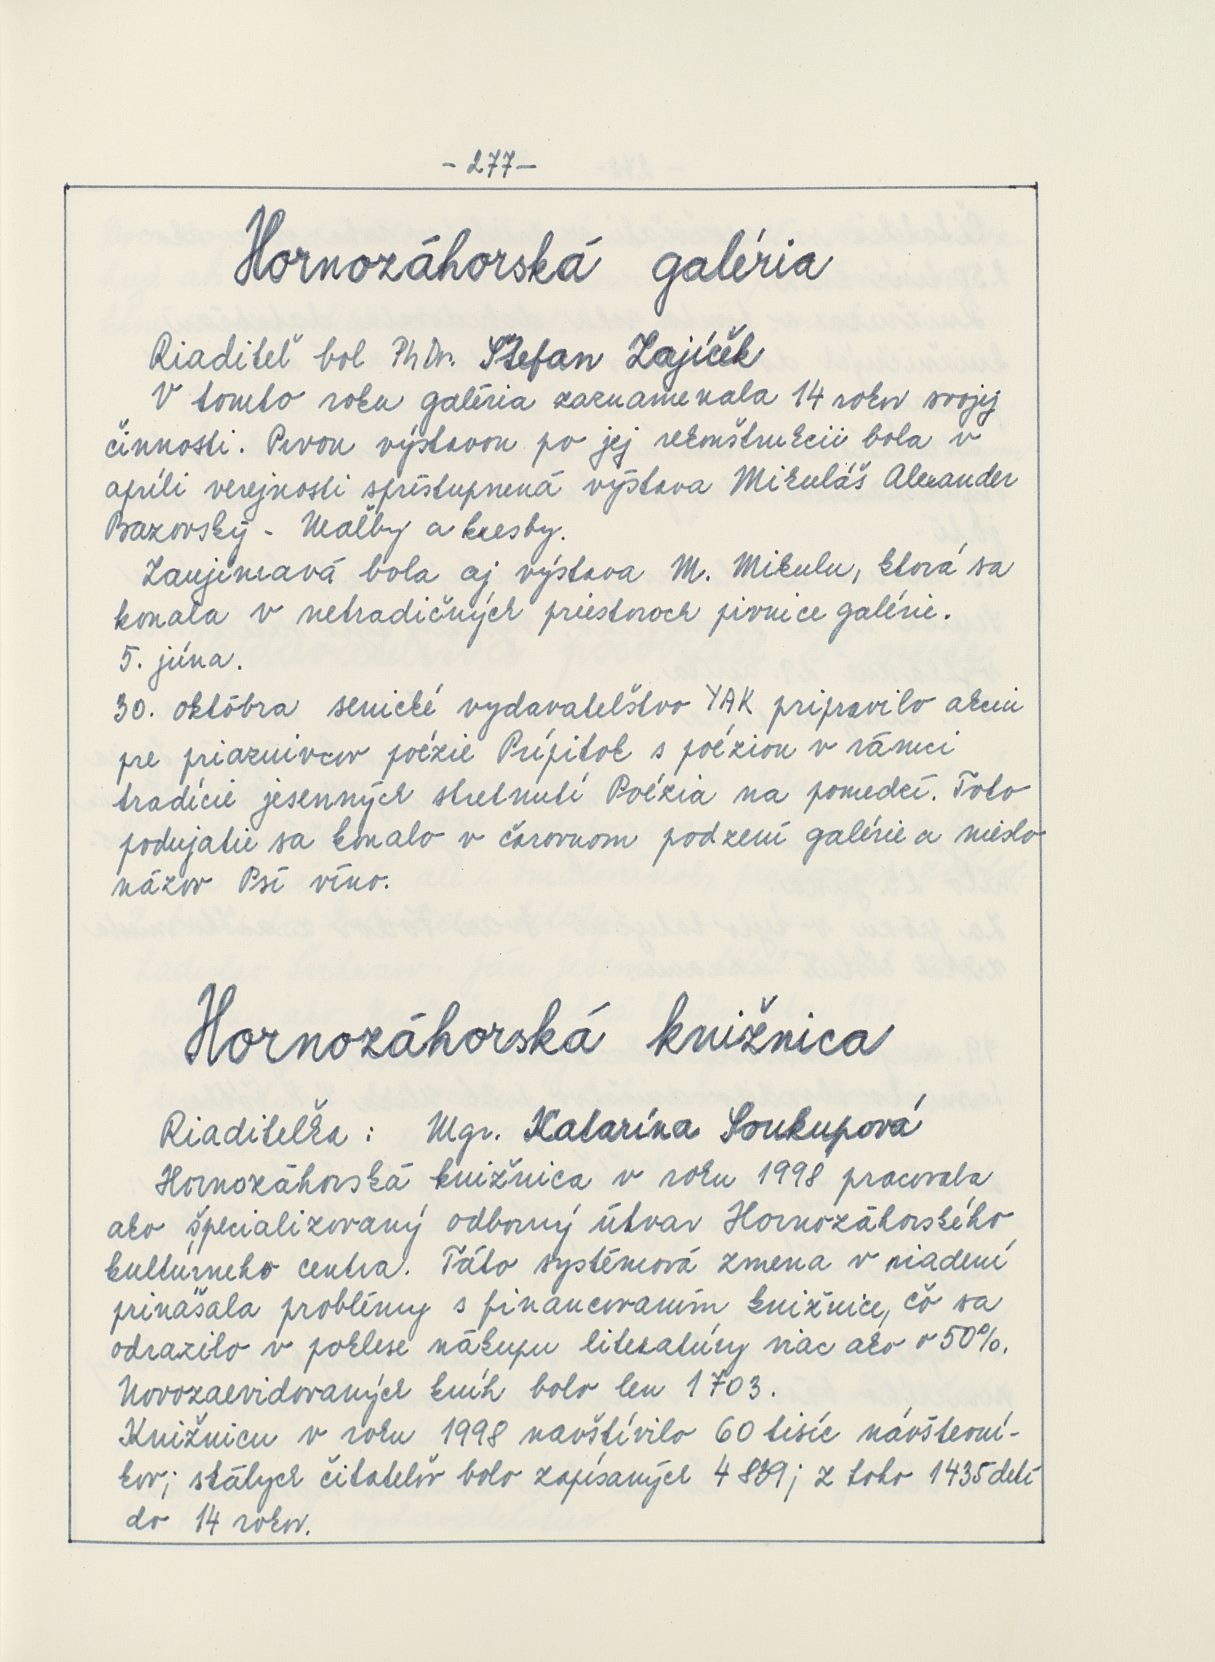 - 277 -
Hornozáhorská galéria
Riaditeľ bol PhDr. Štefan Zajíček
V tomto roku galéria zaznamenala 14 rokov svojej
činnosti. Prvou výstavou po jej rekonštrukcii bola v
apríli verejnosti sprístupnená výstava Mikuláš Alexander
Bazovský - Maľby a kresby.
Zaujímavá bola aj výstava M. Mikulu, ktorá sa
konala v netradičných priestoroch pivnice galérie.
5. júna.
30. októbra senické vydavateľstvo YAK pripravilo akciu
pre priaznivcov poézie Prípitok s poéziou v rámci
tradície jesenných stretnutí Poézia na pomedzí. Toto
podujatie sa konalo v čarovnom podzemí galérie a nieslo
názov Psí víno.
Hornozáhorská knižnica
Riaditeľka : Mgr. Katarína Soukupová
Hornozáhorská knižnica v roku 1998 pracovala
ako špecializovaný odborný útvar Hornozáhorského
kultúrneho centra. Táto systémová zmena v riadení
prinášala problémy s financovaním knižnice, čo sa
odrazilo v poklese nákupu literatúry viac ako o 50%.
Novozaevidovaných kníh bolo len 1703.
Knižnicu v roku 1998 navštívilo 60 tisíc návštevní-
kov; stálych čitateľov bolo zapísaných ; z toho 1435 detí
do 14 rokov.